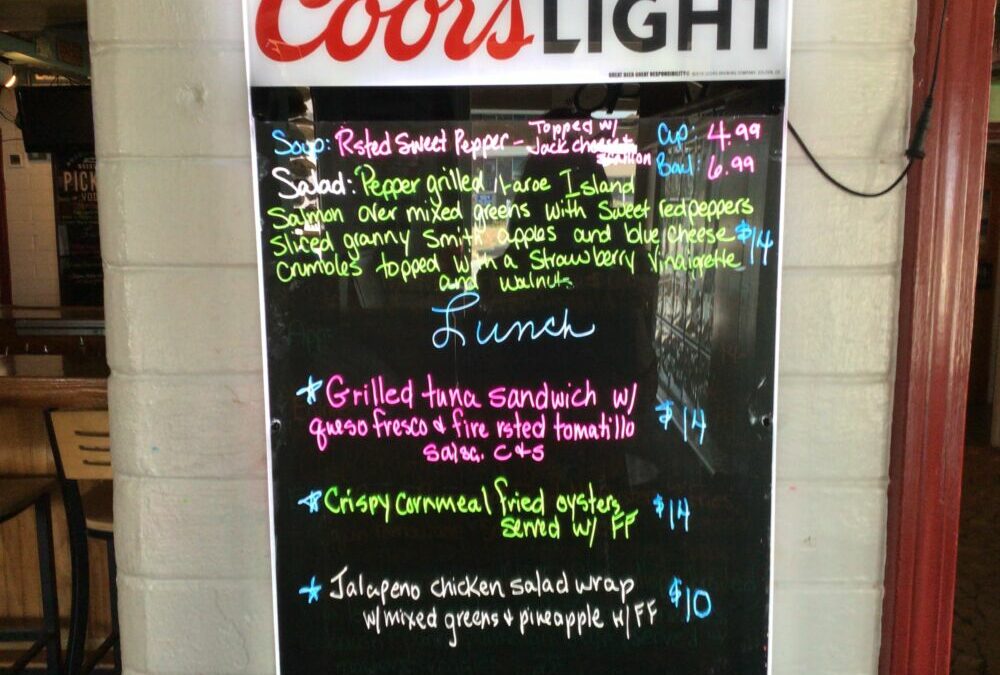 Coors LIGHT
GREAT BEER GREAT RESPONSIBILITY®
PICK
VOD
Soup: Rsted Sweet Pepper - Topped w/
Jack cheese +
scallion
Cup: 4.99
Bowl: 6.99
Salad: Pepper grilled Faroe Island
Salmon over mixed greens with sweet red peppers
sliced granny smith apples and blue cheese $14
crumbles topped with a strawberry vinaigrette
and walnuts
Lunch
* Grilled tuna sandwich w/
queso fresco & fire rsted tomatillo $14
salsa. C+S
* Crispy cornmeal fried oysters $14
served w/ FF
* Jalapeno chicken salad wrap $10
w/mixed greens + pineapple w/FF